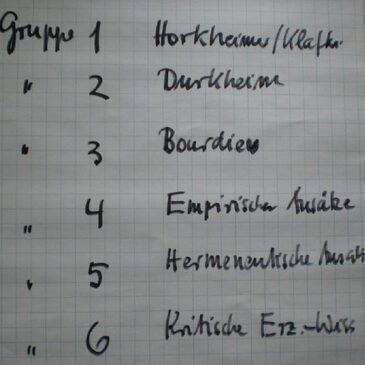 Gruppe 1 Horkheimer/Klafki
" 2 Durkheim
" 3 Bourdieu
" 4 Empirischer Ansätze
" 5 Hermeneutische Ansätz
" 6 Kritische Erz.-Wiss